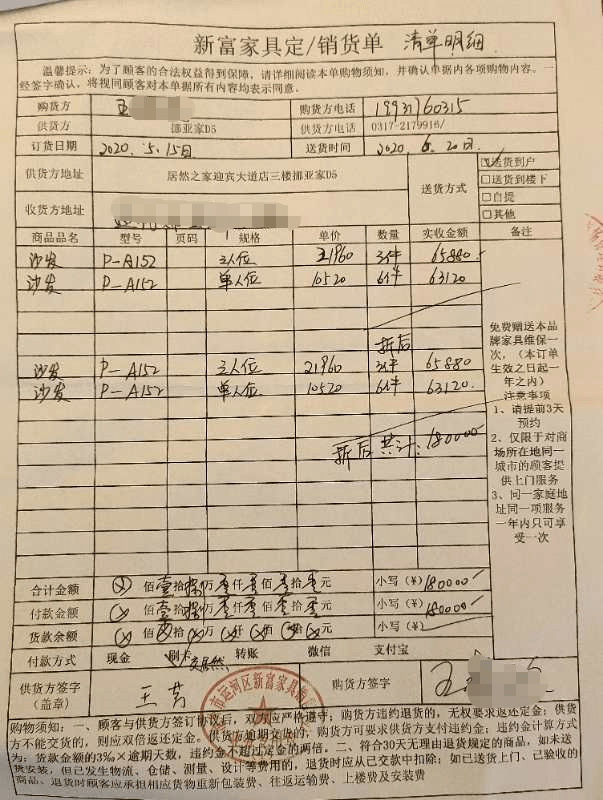 新富家具定/销货单 清单明细
温馨提示:为了顾客的合法权益得到保障,请详细阅读本单购物须知,并确认单据内各项购物内容。一
经签字确认,将视同顾客对本单据所有内容均表示同意.
购货方 购货方电话 19931760315
供货方 挪亚家D5 供货方电话 0317-2179916/
订货日期 2020.5.15日 送货时间 2020.6.20日.
供货方地址 居然之家迎宾大道店三楼挪亚家D5 送货方式 ☑送货到户
□送货到楼下
收货方地址 □自提
□其他
商品品名 型号 页码 规格 单价 数量 实收金额 备注
沙发 P-A152 3人位 21960 3件 65880.
沙发 P-A152 单人位 10520 6件 63120
折后
沙发 P-A152 3人位 21960 3件 65880
沙发 P-A152 单人位 10520 6件 63120.
折后共计:180000
免费赠送本品
牌家具维保一
次,(本订单
生效之日起一
年之内)
注意事项
1、请提前3天
预约
2、仅限于对商
场所在地同一
城市的顾客提
供上门服务
3、同一家庭地
址同一项服务
一年内只可享
受一次
合计金额 佰壹拾捌万零仟零佰零拾零元 小写(¥)180000
付款金额 佰壹拾捌万零仟零佰零拾零元 小写(¥)180000
货款余额 佰 拾 万 仟 佰 拾 元 小写(¥)
付款方式 现金 刷卡 交居然 转账 微信 支付宝
供货方签字
(盖章) 购货方签字
市运河区新富家具
购物须知:一、顾客与供货方签订协议后,双方应严格遵守;购货方违约退货的,无权要求返还定金;供货
方不能交货的,则应双倍返还定金。供货方逾期交货的,购货方可要求供货方支付违约金;违约金计算方式
为:货款金额的3‰×逾期天数,违约金不超过定金的两倍。二、符合30天无理由退货规定的商品,如未送
货安装,但已发生物流、仓储、测量、设计等费用的,退货时应从已交款中扣除;如已送货上门、已验收的
商品、退货时顾客应承担相应货物重新包装费、往返运输费、上楼费及安装费